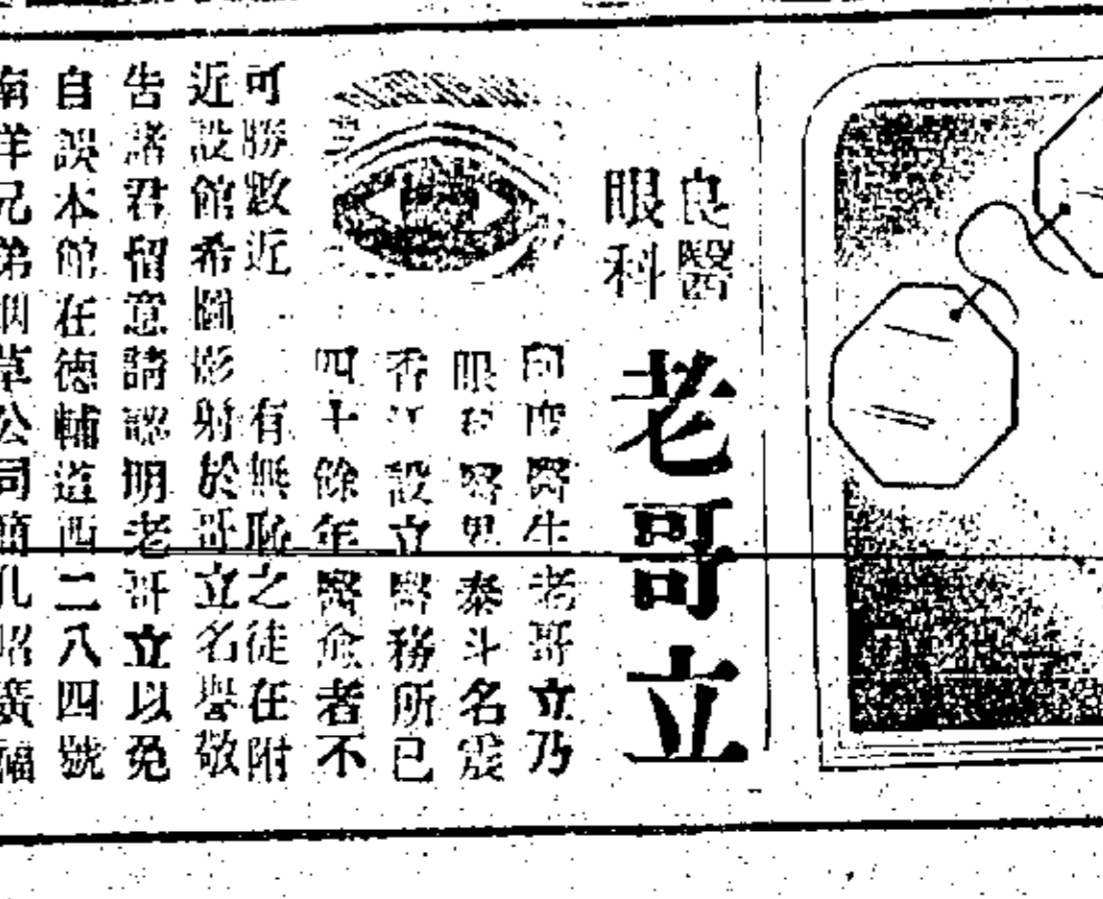 良醫
眼科
老哥立
印度醫生老哥立乃
眼科醫界泰斗名震
香江設立醫務所已
四十餘年醫愈者不
可勝數近有無恥之徒在附
近設館希圖影射於哥立名譽敬
告諸君留意請認明老哥立以免
自誤本館在德輔道西二八四號
南洋兄弟烟草公司簡孔昭廣福